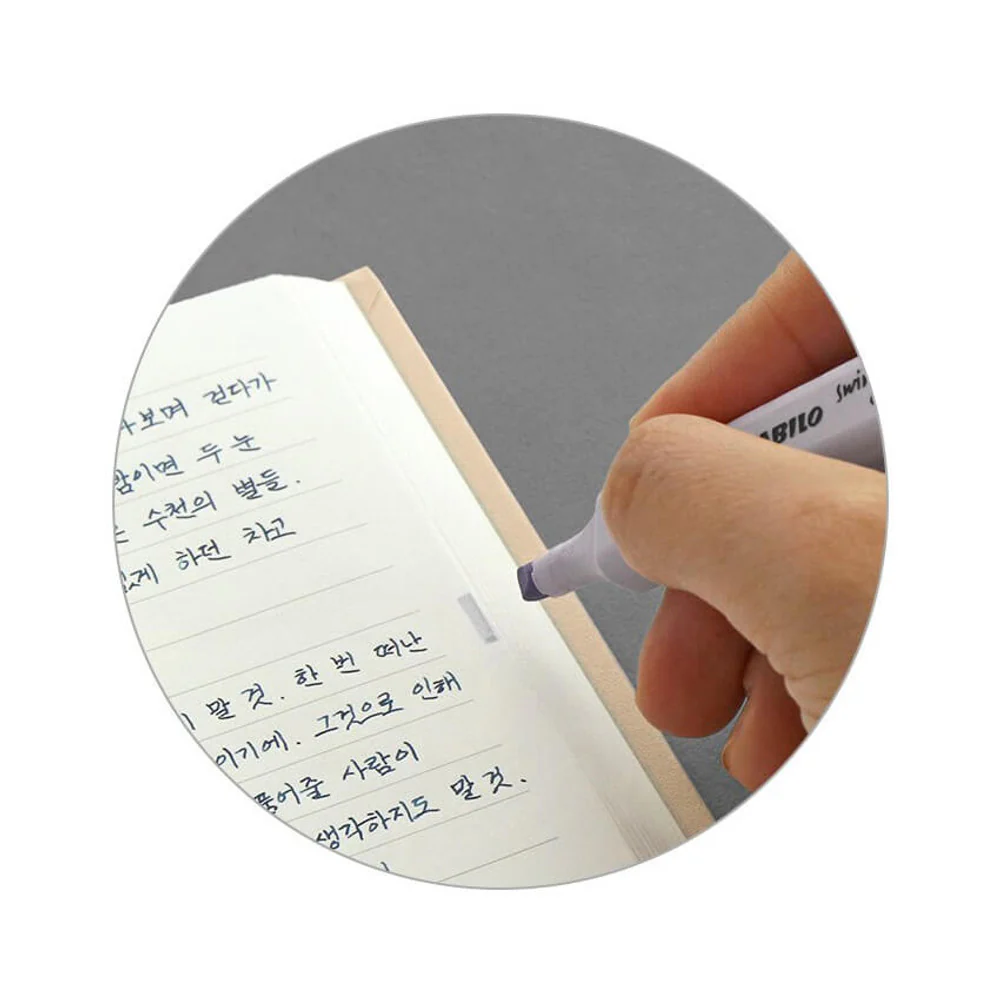 보며 걷다가
밤이면 두 눈
수천의 별들.
하던 차고
말 것. 한 번 떠난
이기에. 그것으로 인해
풀어줄 사람이
생각하지도 말 것.
ABILO